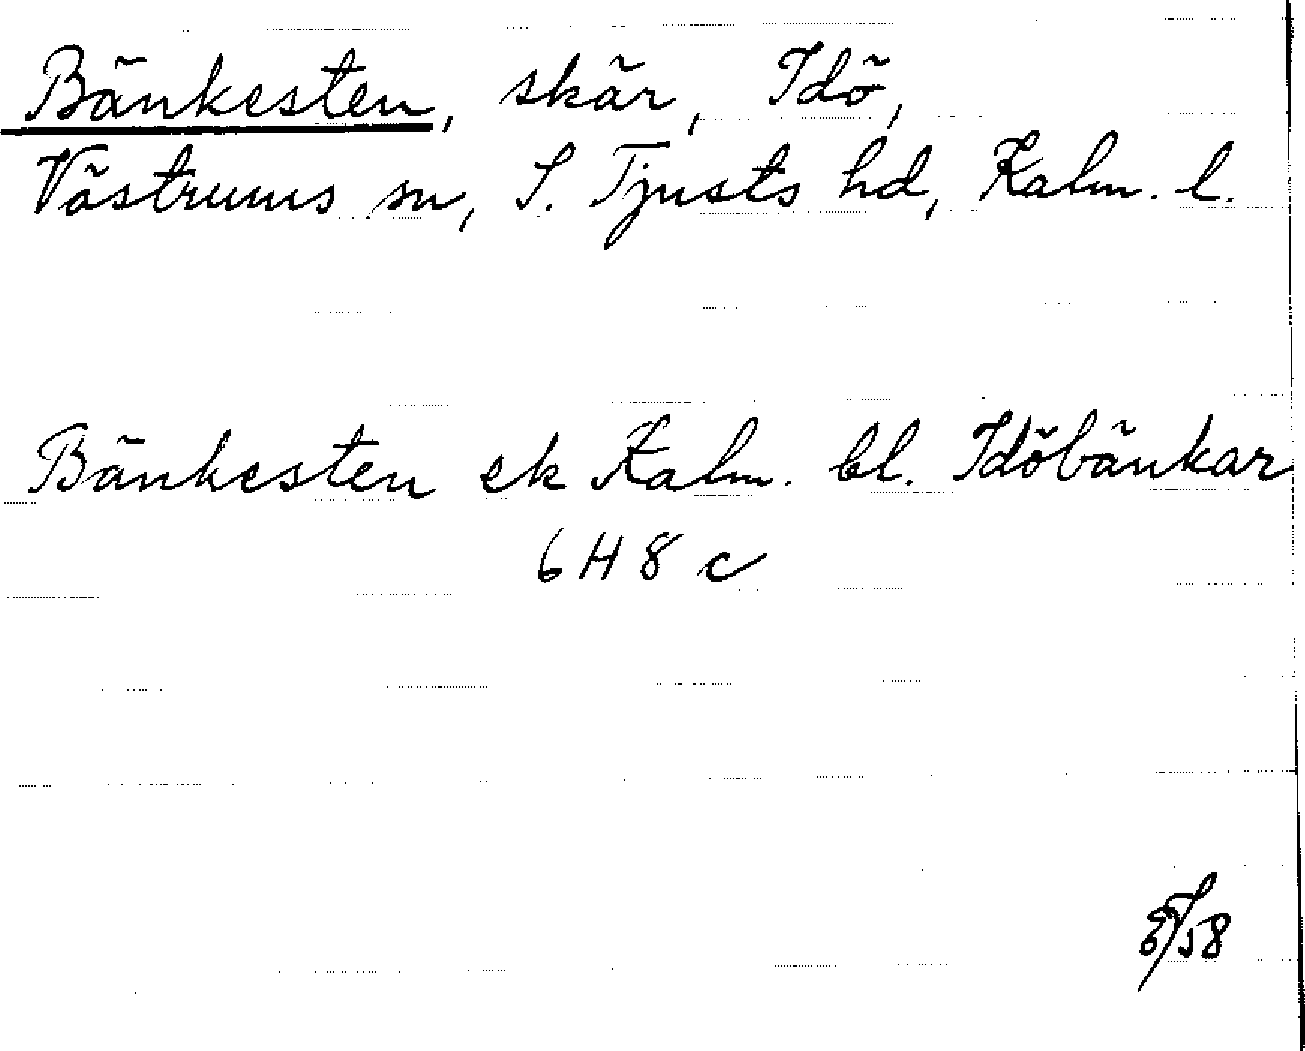 Bänkesten, skär, Idö,
Västrums sn, S. Tjusts hd, Kalm. l.
Bänkesten ek Kalm. bl. Idöbänkar
6 H 8 c